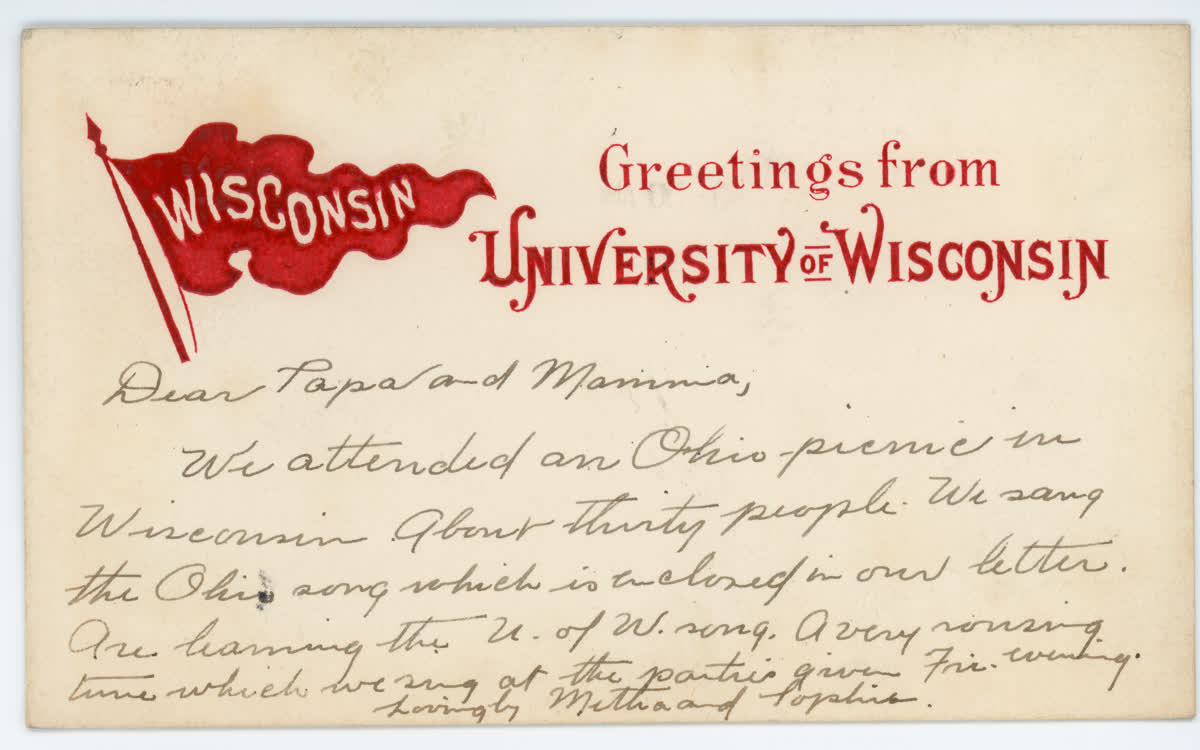 WISCONSIN
Greetings from
UNIVERSITY OF WISCONSIN
Dear Papa and Mamma,
We attended an Ohio picnic in
Wisconsin. About thirty people. We sang
the Ohio song which is enclosed in our letter.
Are learning the U. of W. song. A very rousing
tune which we sing at the parties given Fri. evening.
Lovingly Metha and Sophie.